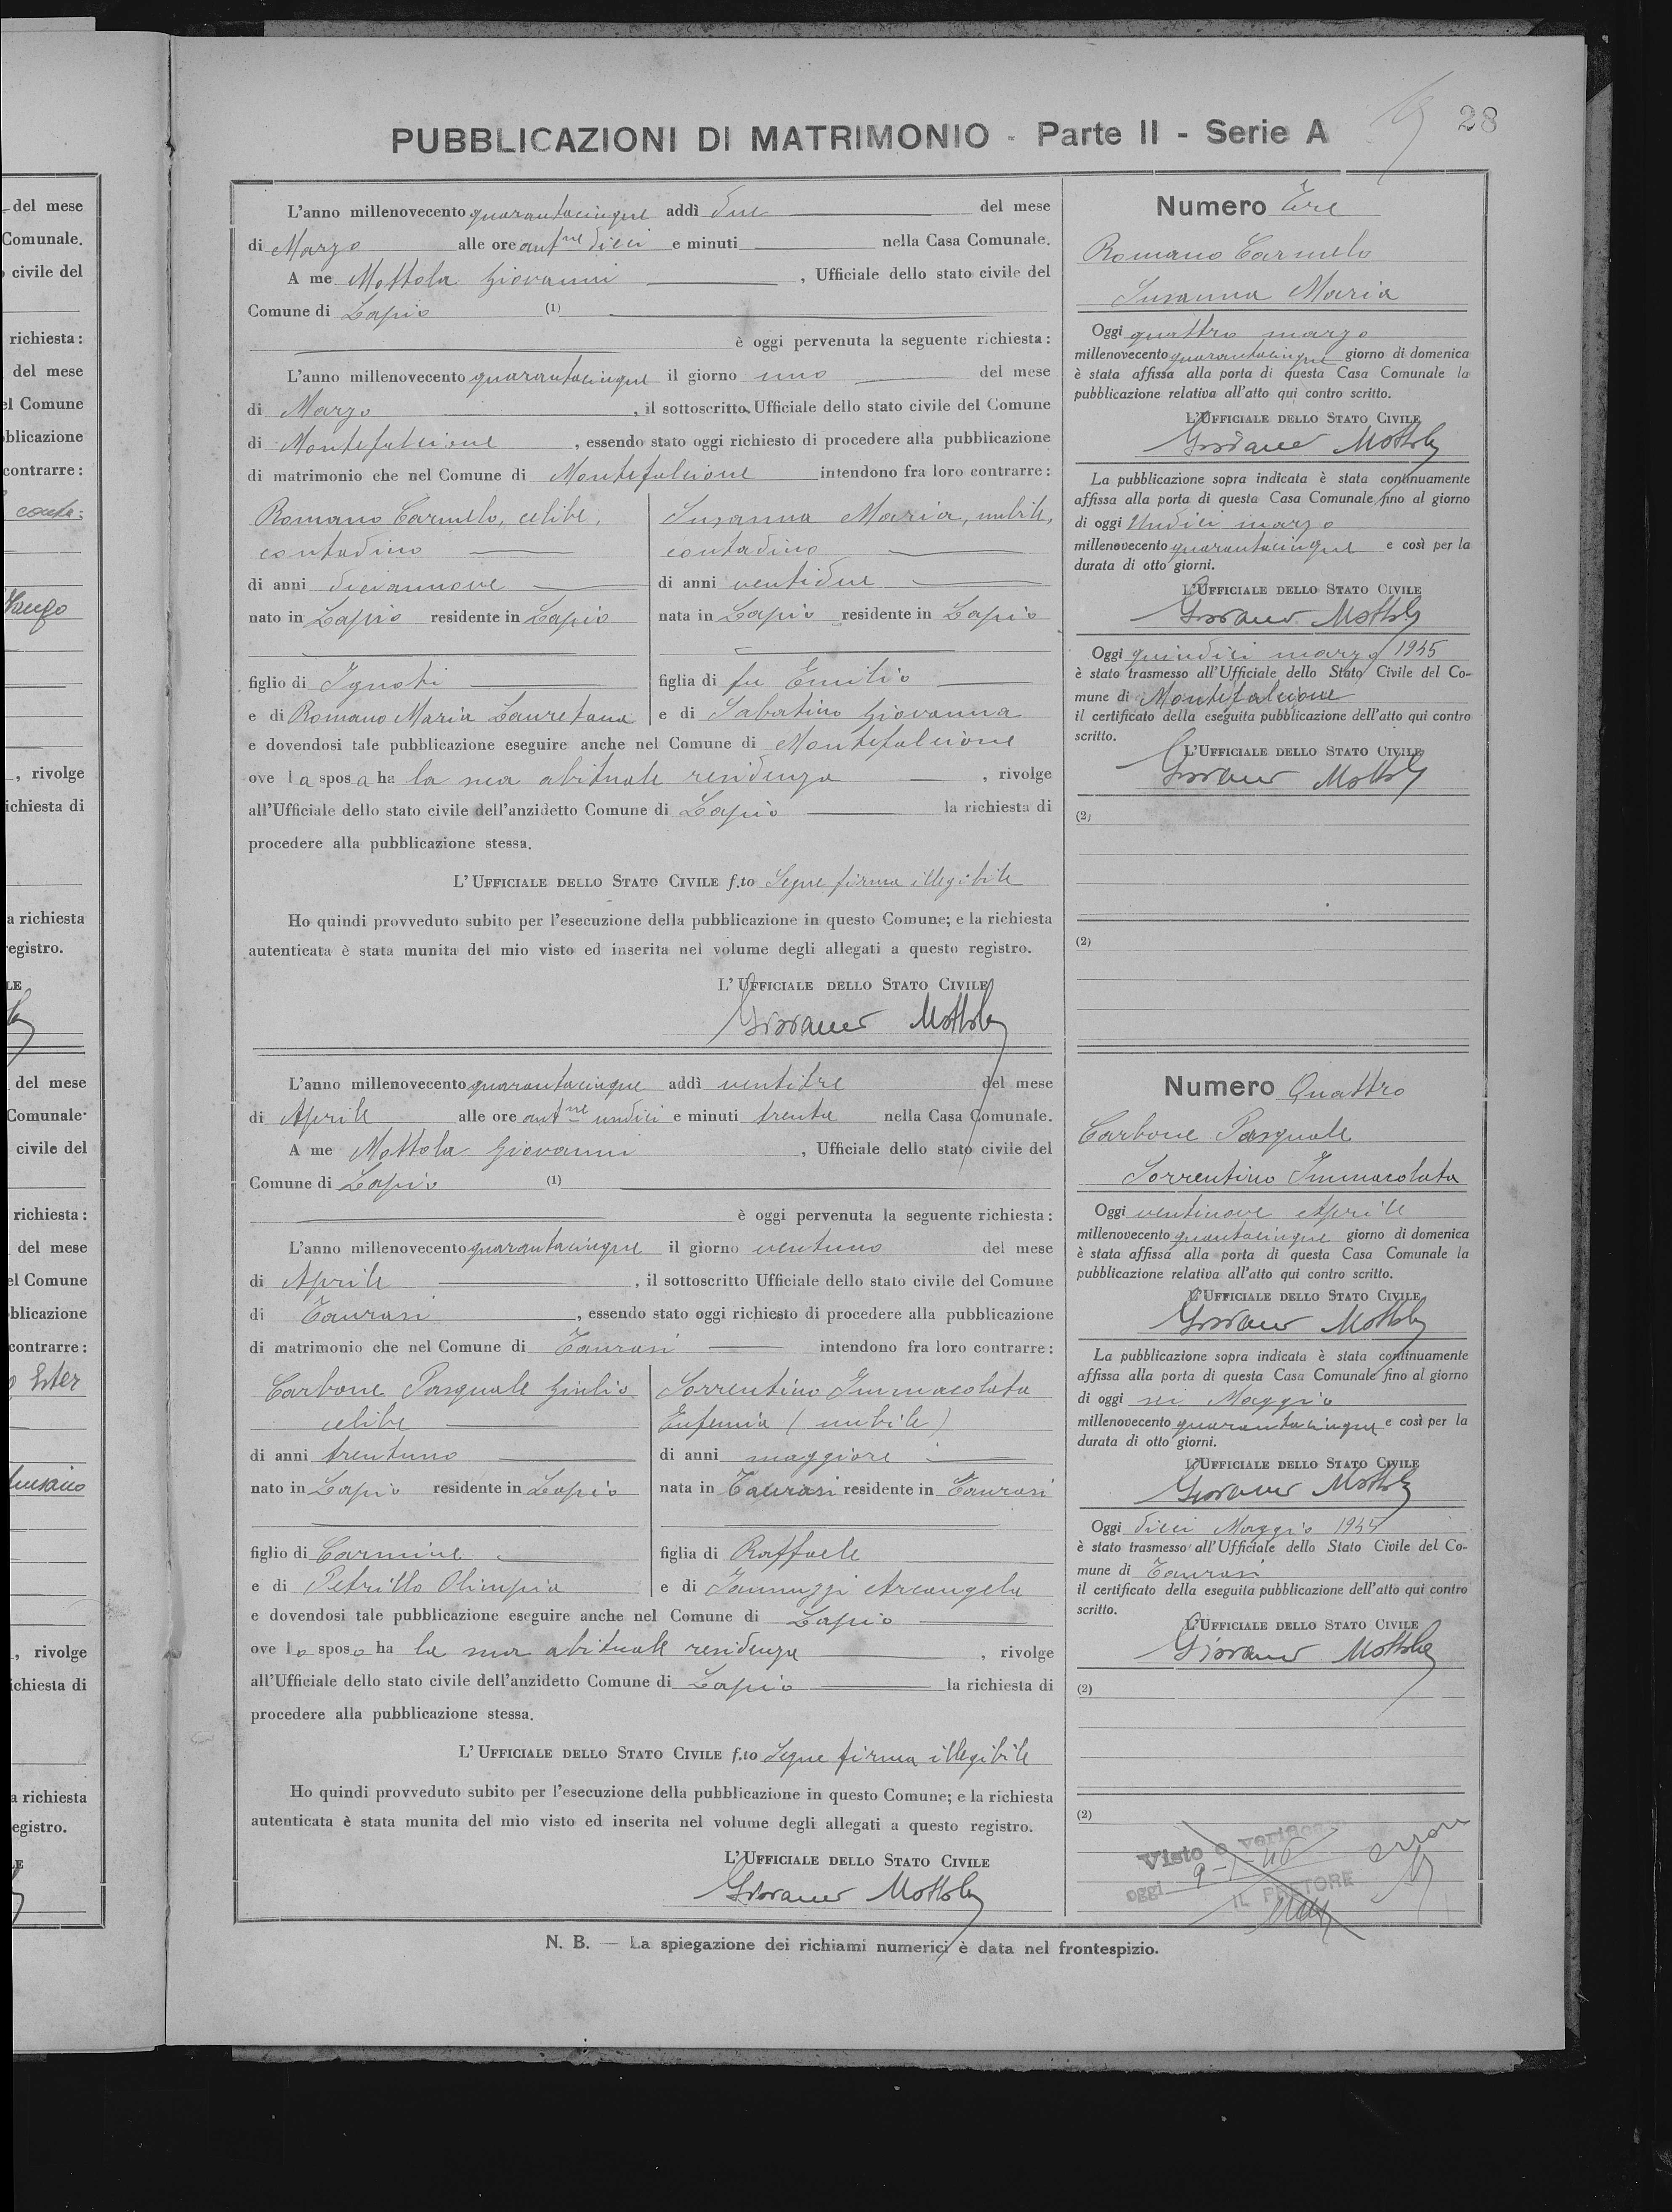 del mese
Comunale.
civile del
richiesta:
del mese
el Comune
blicazione
contrarre:
, rivolge
ichiesta di
a richiesta
registro.
LE
del mese
Comunale.
civile del
richiesta:
del mese
el Comune
blicazione
contrarre:
Ester
, rivolge
ichiesta di
a richiesta
egistro.
28
PUBBLICAZIONI DI MATRIMONIO - Parte II - Serie A
L'anno millenovecento quarantacinque addì due del mese
di Marzo alle ore antne dieci e minuti nella Casa Comunale.
A me Mottola Giovanni, Ufficiale dello stato civile del
Comune di Lapio (1)
è oggi pervenuta la seguente richiesta:
L'anno millenovecento quarantacinque il giorno uno del mese
di Marzo, il sottoscritto Ufficiale dello stato civile del Comune
di Montefalcione, essendo stato oggi richiesto di procedere alla pubblicazione
di matrimonio che nel Comune di Montefalcione intendono fra loro contrarre:
Romano Carmelo, celibe,
contadino
di anni diciannove
nato in Lapio residente in Lapio
figlio di Ignoti
e di Romano Maria Lauretana
Susanna Maria, nubile,
contadina
di anni ventidue
nata in Lapio residente in Lapio
figlia di fu Emilio
e di Sabatino Giovanna
e dovendosi tale pubblicazione eseguire anche nel Comune di Montefalcione
ove la sposa ha la sua abituale residenza, rivolge
all'Ufficiale dello stato civile dell'anzidetto Comune di Lapio la richiesta di
procedere alla pubblicazione stessa.
L'UFFICIALE DELLO STATO CIVILE f.to Segue firma illegibile
Ho quindi provveduto subito per l'esecuzione della pubblicazione in questo Comune; e la richiesta
autenticata è stata munita del mio visto ed inserita nel volume degli allegati a questo registro.
L'UFFICIALE DELLO STATO CIVILE
Giovanni Mottola
Numero Tre
Romano Carmelo
Susanna Maria
Oggi quattro marzo
millenovecento quarantacinque giorno di domenica
è stata affissa alla porta di questa Casa Comunale la
pubblicazione relativa all'atto qui contro scritto.
L'UFFICIALE DELLO STATO CIVILE
Giovanni Mottola
La pubblicazione sopra indicata è stata continuamente
affissa alla porta di questa Casa Comunale fino al giorno
di oggi Undici marzo
millenovecento quarantacinque e così per la
durata di otto giorni.
L'UFFICIALE DELLO STATO CIVILE
Giovanni Mottola
Oggi quindici marzo 1945
è stato trasmesso all'Ufficiale dello Stato Civile del Co-
mune di Montefalcione
il certificato della eseguita pubblicazione dell'atto qui contro
scritto.
L'UFFICIALE DELLO STATO CIVILE
Giovanni Mottola
(2)
(2)
L'anno millenovecento quarantacinque addì ventitre del mese
di Aprile alle ore antne undici e minuti trenta nella Casa Comunale.
A me Mottola Giovanni, Ufficiale dello stato civile del
Comune di Lapio (1)
è oggi pervenuta la seguente richiesta:
L'anno millenovecento quarantacinque il giorno ventuno del mese
di Aprile, il sottoscritto Ufficiale dello stato civile del Comune
di Taurasi, essendo stato oggi richiesto di procedere alla pubblicazione
di matrimonio che nel Comune di Taurasi intendono fra loro contrarre:
Carbone Pasquale Giulio
celibe
di anni trentuno
nato in Lapio residente in Lapio
figlio di Carmine
e di Petrillo Olimpia
Sorrentino Immacolata
Eufemia (nubile)
di anni maggiore
nata in Taurasi residente in Taurasi
figlia di Raffaele
e di Iannuzzi Arcangela
e dovendosi tale pubblicazione eseguire anche nel Comune di Lapio
ove lo sposo ha la sua abituale residenza, rivolge
all'Ufficiale dello stato civile dell'anzidetto Comune di Lapio la richiesta di
procedere alla pubblicazione stessa.
L'UFFICIALE DELLO STATO CIVILE f.to Segue firma illegibile
Ho quindi provveduto subito per l'esecuzione della pubblicazione in questo Comune; e la richiesta
autenticata è stata munita del mio visto ed inserita nel volume degli allegati a questo registro.
L'UFFICIALE DELLO STATO CIVILE
Giovanni Mottola
Numero Quattro
Carbone Pasquale
Sorrentino Immacolata
Oggi ventinove Aprile
millenovecento quarantacinque giorno di domenica
è stata affissa alla porta di questa Casa Comunale la
pubblicazione relativa all'atto qui contro scritto.
L'UFFICIALE DELLO STATO CIVILE
Giovanni Mottola
La pubblicazione sopra indicata è stata continuamente
affissa alla porta di questa Casa Comunale fino al giorno
di oggi sei Maggio
millenovecento quarantacinque e così per la
durata di otto giorni.
L'UFFICIALE DELLO STATO CIVILE
Giovanni Mottola
Oggi dieci Maggio 1945
è stato trasmesso all'Ufficiale dello Stato Civile del Co-
mune di Taurasi
il certificato della eseguita pubblicazione dell'atto qui contro
scritto.
L'UFFICIALE DELLO STATO CIVILE
Giovanni Mottola
(2)
(2)
Visto e verificato
oggi 9-1-46
IL PRETORE
errore
N. B. — La spiegazione dei richiami numerici è data nel frontespizio.